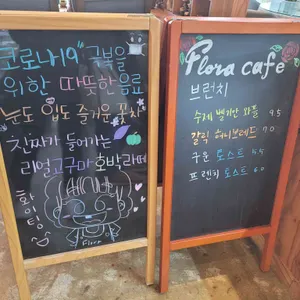 "코로나19" 극복을
위한 따뜻한 음료
눈도 입도 즐거운 꽃차
진짜가 들어가는
리얼고구마 호박라떼
화이팅
Flora
Flora cafe
브런치
수제 벨기안 와플 9.5
갈릭 허니브레드 7.0
구운 토스트 5.5
프렌치 토스트 6.0